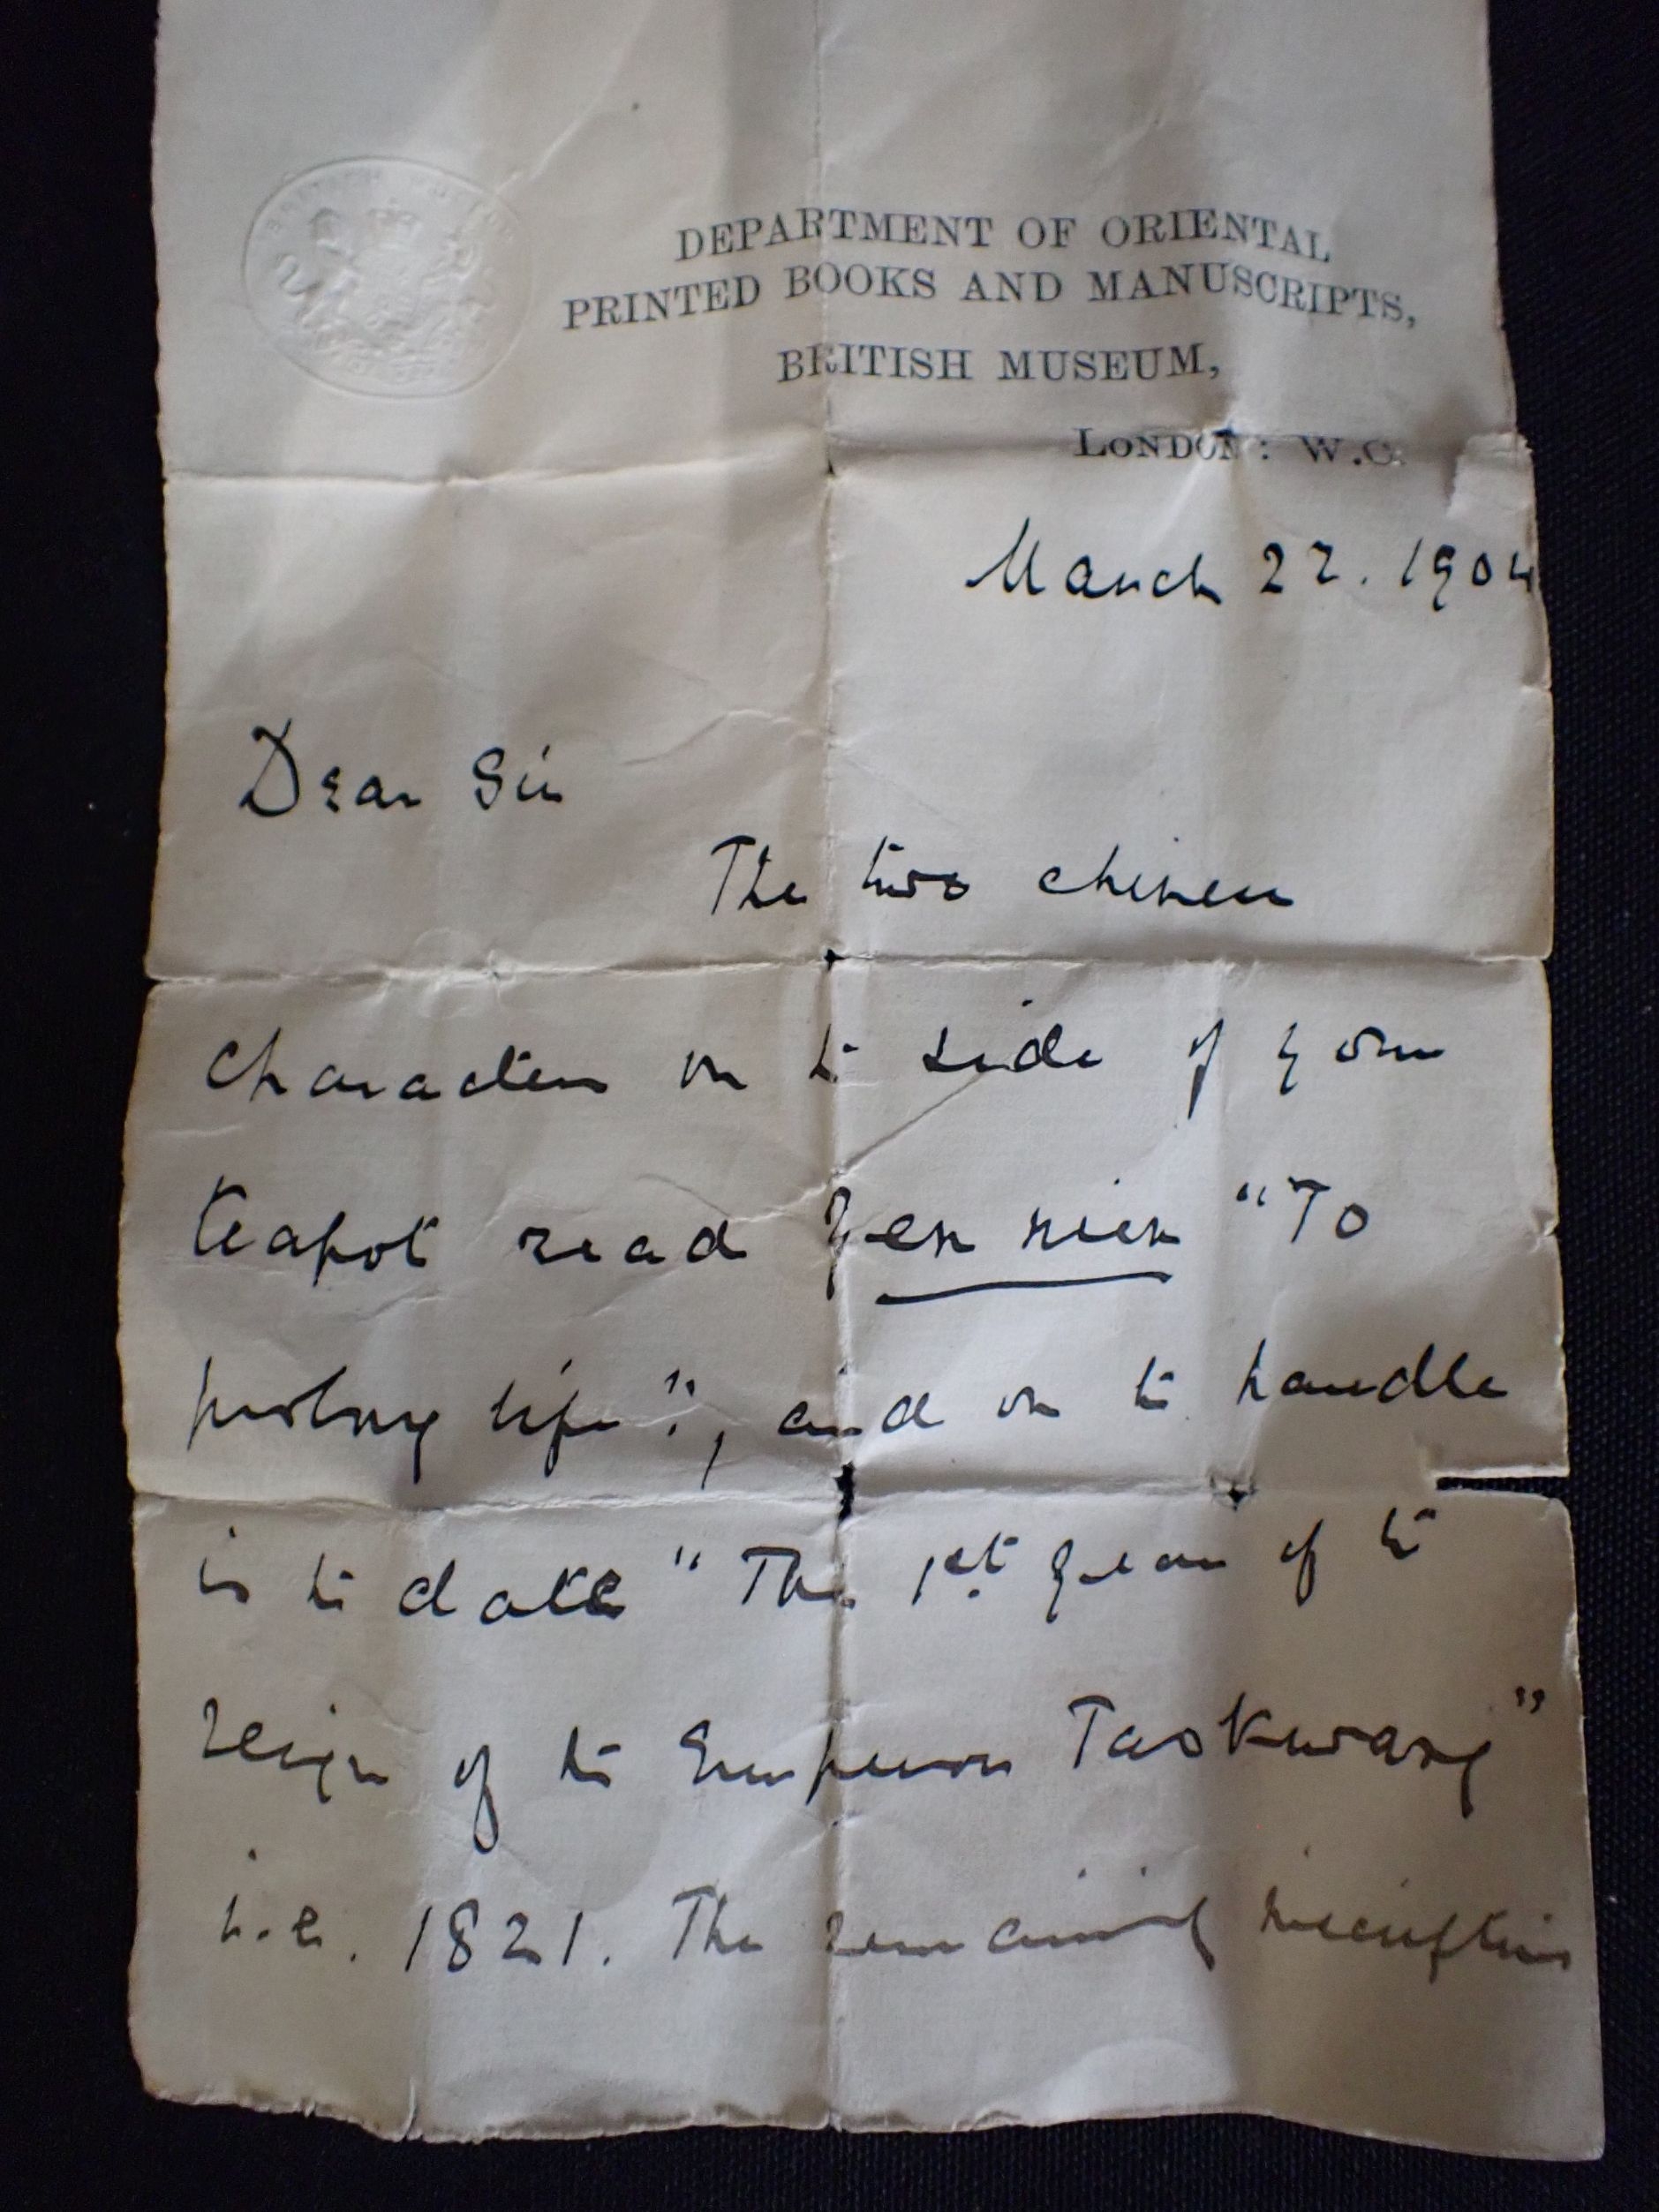 BRITISH MUSEUM
DEPARTMENT OF ORIENTAL
PRINTED BOOKS AND MANUSCRIPTS,
BRITISH MUSEUM,
LONDON: W.C.
March 22. 1904
Dear Sir
The two chinese
characters on the side of your
teapot read Yen nien "To
prolong life", and on the handle
is the date "The 1st year of the
reign of the Emperor Taokwang"
i.e. 1821. The remaining inscription